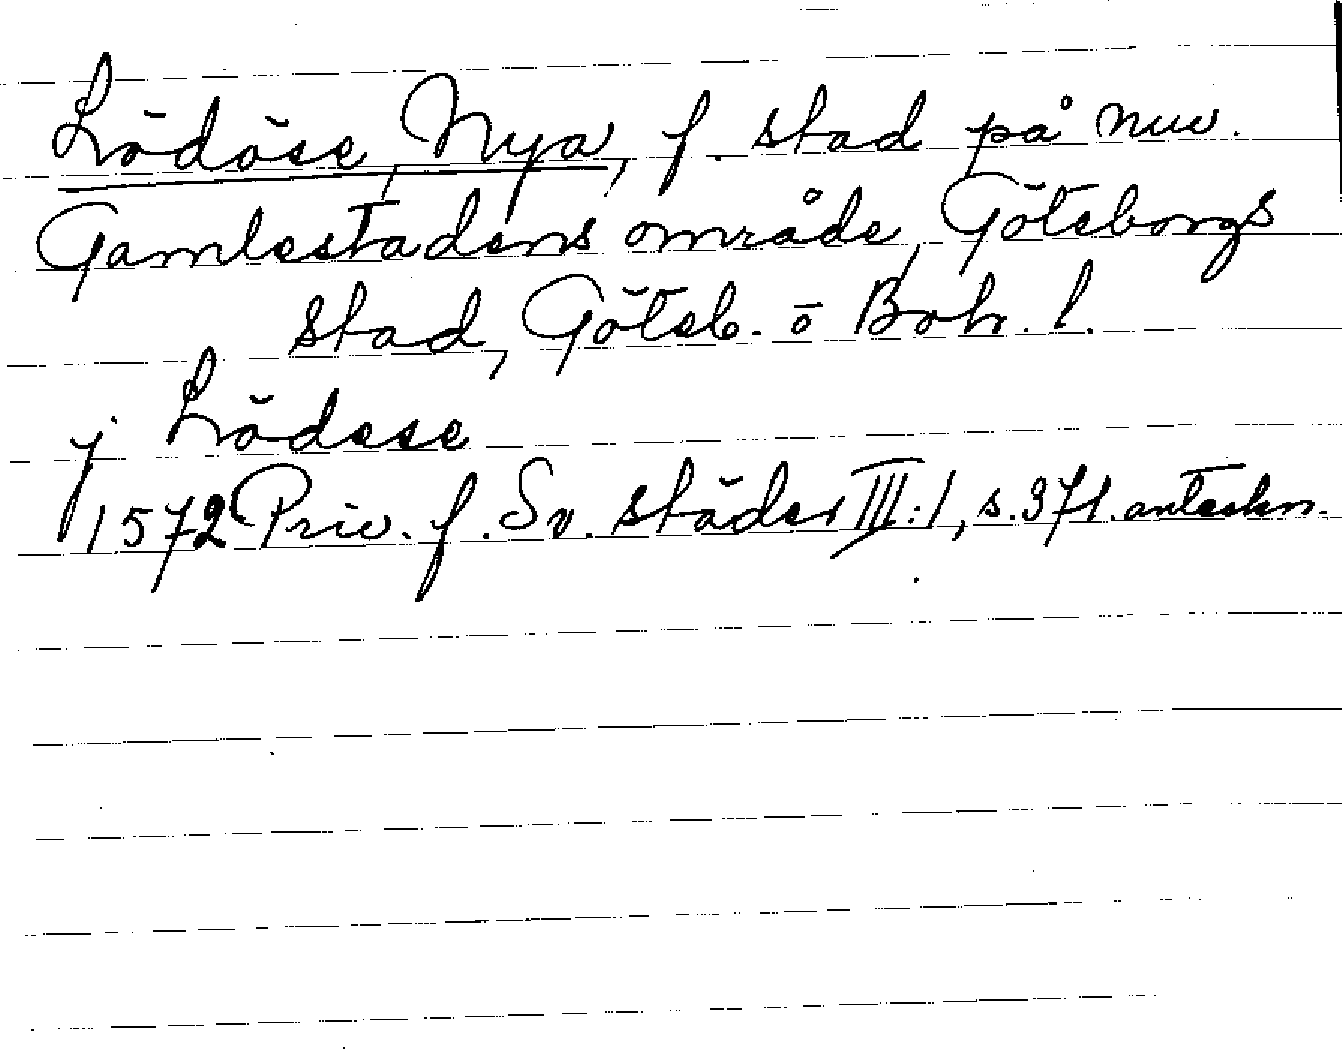 Lödöse, Nya, f. stad på nuv.
Gamlestadens område, Göteborgs
stad, Göteb. o Boh. l.
j Lödese
1572 Priv. f. Sv. städer III:1, s. 371. anteckn.